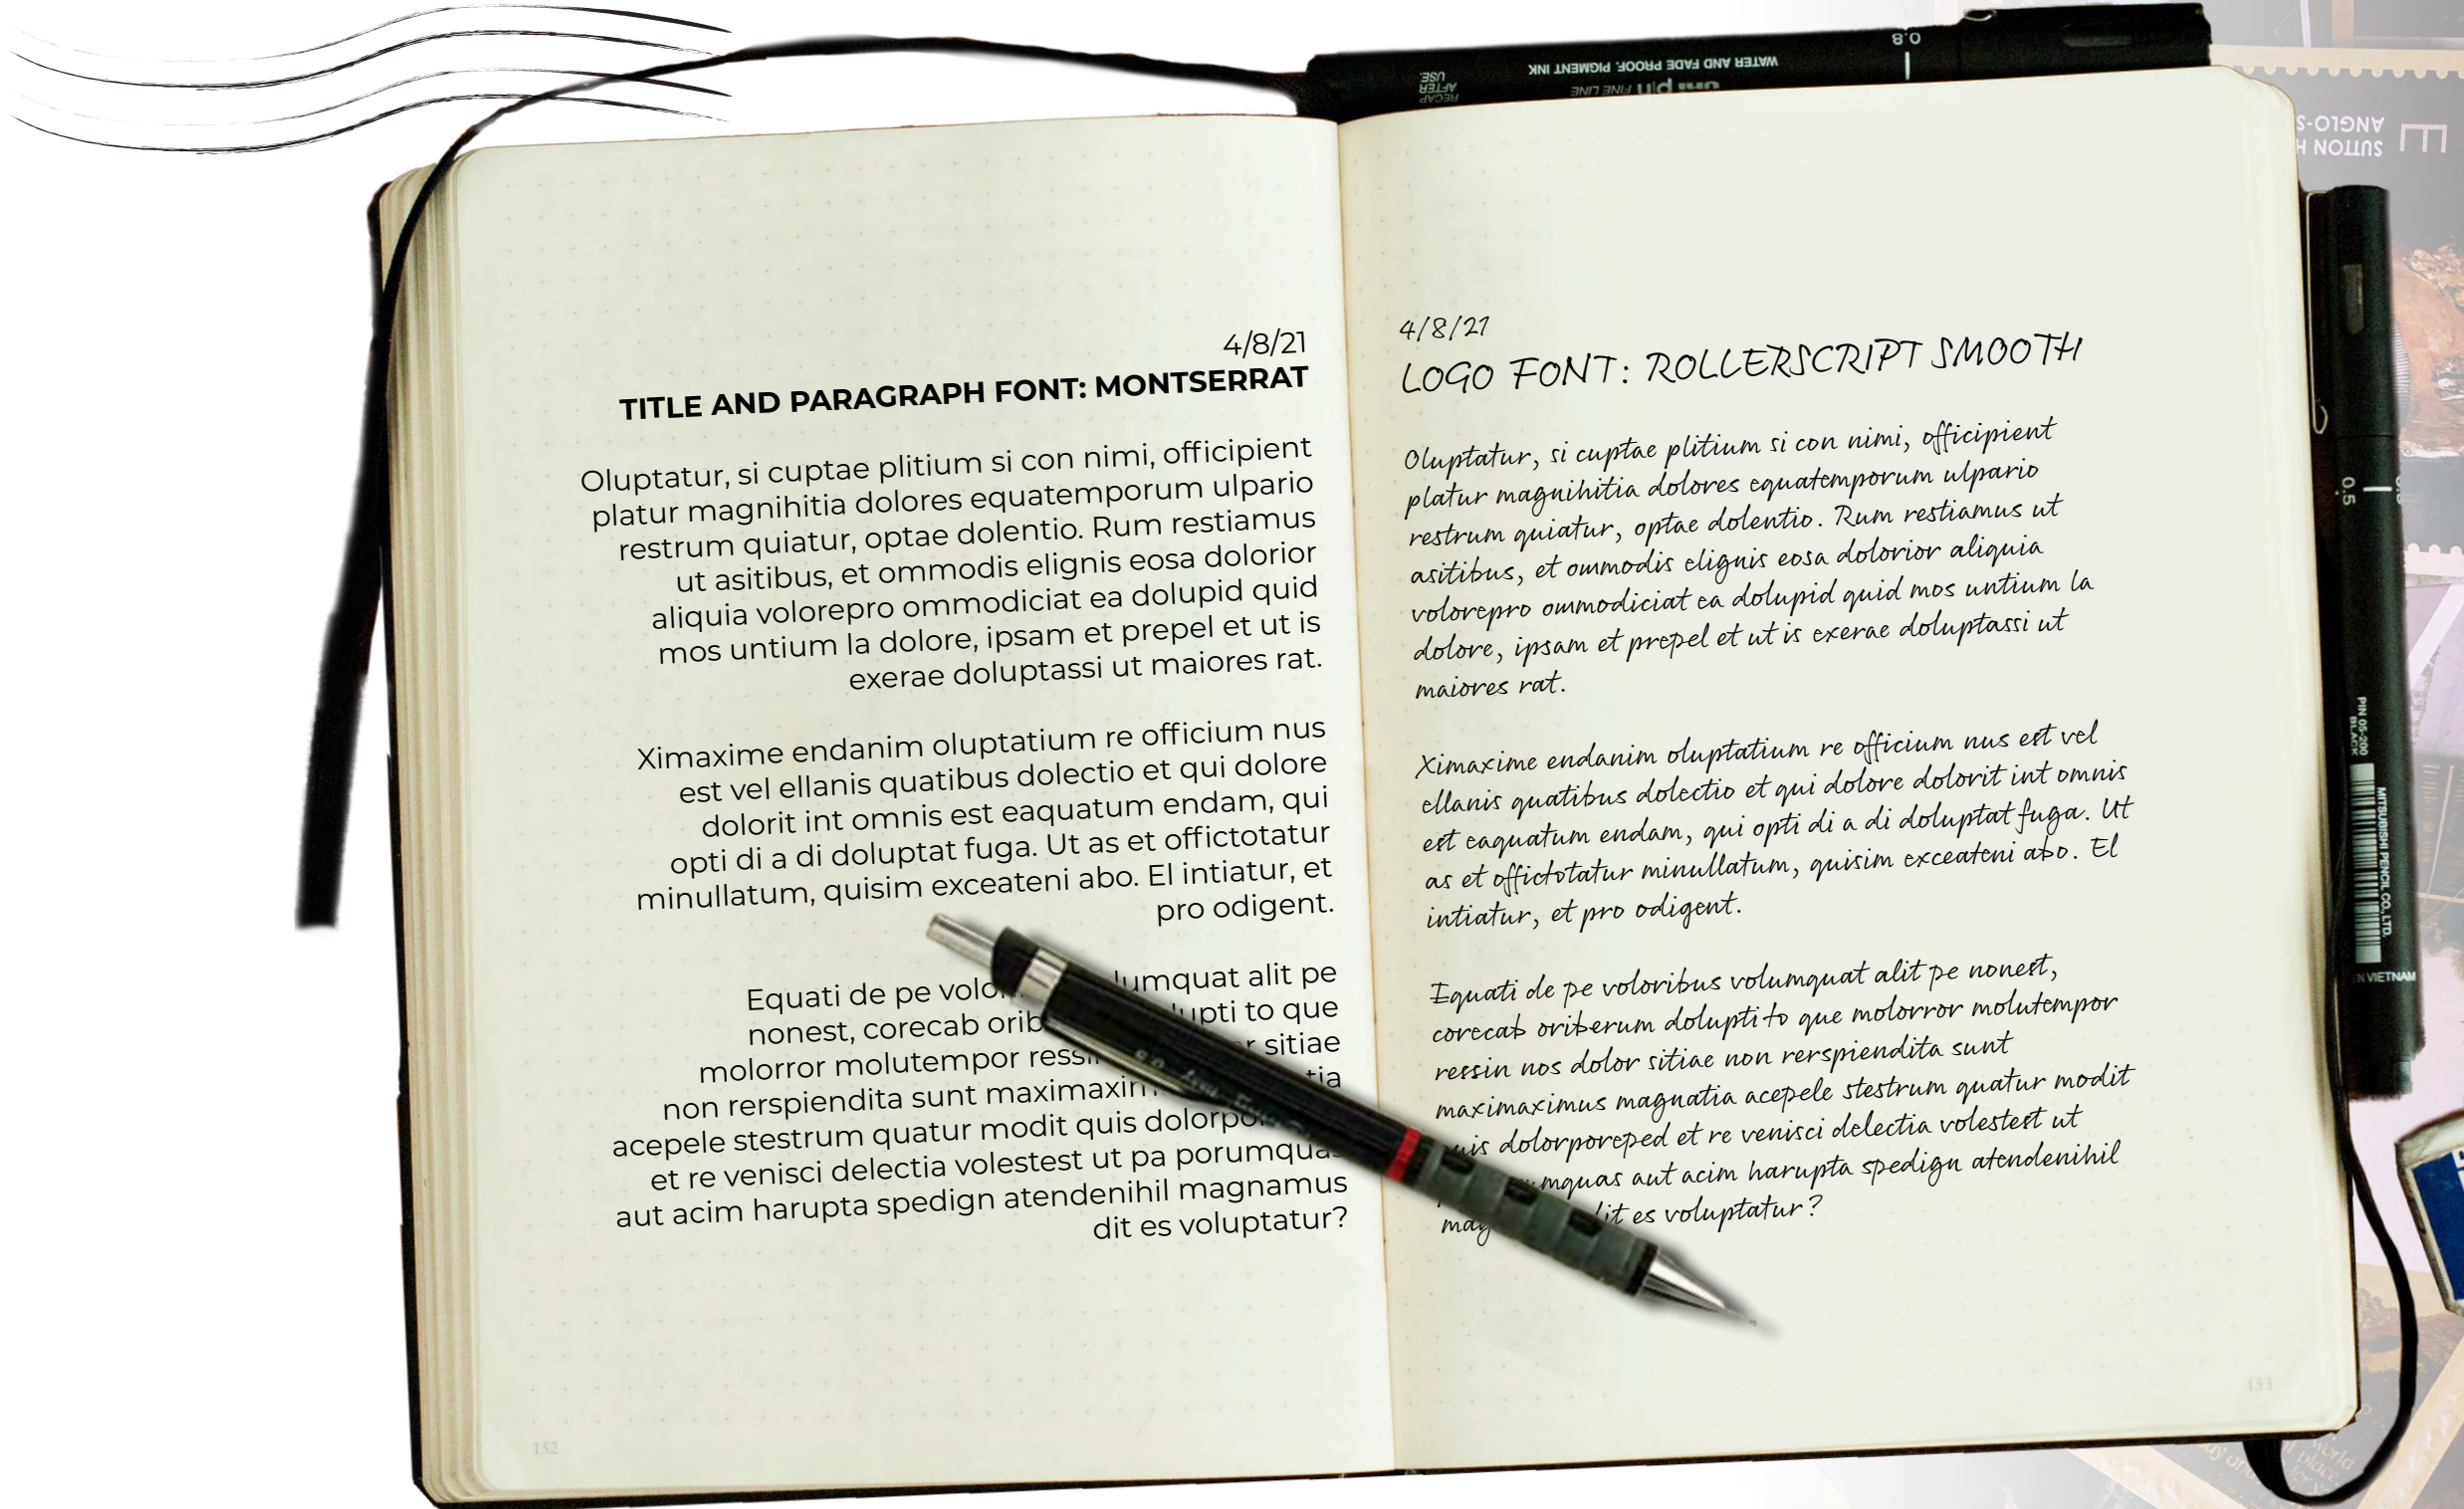 WATER AND FADE PROOF, PIGMENT INK
0.8
uni pin FINE LINE
RECAP
AFTER
USE
SUTTON H
ANGLO-S
4/8/21
TITLE AND PARAGRAPH FONT: MONTSERRAT
Oluptatur, si cuptae plitium si con nimi, officipient
platur magnihitia dolores equatemporum ulpario
restrum quiatur, optae dolentio. Rum restiamus
ut asitibus, et ommodis elignis eosa dolorior
aliquia volorepro ommodiciat ea dolupid quid
mos untium la dolore, ipsam et prepel et ut is
exerae doluptassi ut maiores rat.
Ximaxime endanim oluptatium re officium nus
est vel ellanis quatibus dolectio et qui dolore
dolorit int omnis est eaquatum endam, qui
opti di a di doluptat fuga. Ut as et offictotatur
minullatum, quisim exceateni abo. El intiatur, et
pro odigent.
Equati de pe volo lumquat alit pe
nonest, corecab orib lupti to que
molorror molutempor ressi r sitiae
non rerspiendita sunt maximaxim tia
acepele stestrum quatur modit quis dolorpo
et re venisci delectia volestest ut pa porumquas
aut acim harupta spedign atendenihil magnamus
dit es voluptatur?
152
4/8/21
LOGO FONT: ROLLERSCRIPT SMOOTH
Oluptatur, si cuptae plitium si con nimi, officipient
platur magnihitia dolores equatemporum ulpario
restrum quiatur, optae dolentio. Rum restiamus ut
asitibus, et ommodis elignis eosa dolorior aliquia
volorepro ommodiciat ea dolupid quid mos untium la
dolore, ipsam et prepel et ut is exerae doluptassi ut
maiores rat.
Ximaxime endanim oluptatium re officium nus est vel
ellanis quatibus dolectio et qui dolore dolorit int omnis
est eaquatum endam, qui opti di a di doluptat fuga. Ut
as et offictotatur minullatum, quisim exceateni abo. El
intiatur, et pro odigent.
Equati de pe voloribus volumquat alit pe nonest,
corecab oriberum dolupti to que molorror molutempor
ressin nos dolor sitiae non rerspiendita sunt
maximaximus magnatia acepele stestrum quatur modit
quis dolorporeped et re venisci delectia volestest ut
mquas aut acim harupta spedign atendenihil
mag dit es voluptatur?
153
0.5
PIN 05-200
BLACK
MITSUBISHI PENCIL CO., LTD.
EN VIETNAM